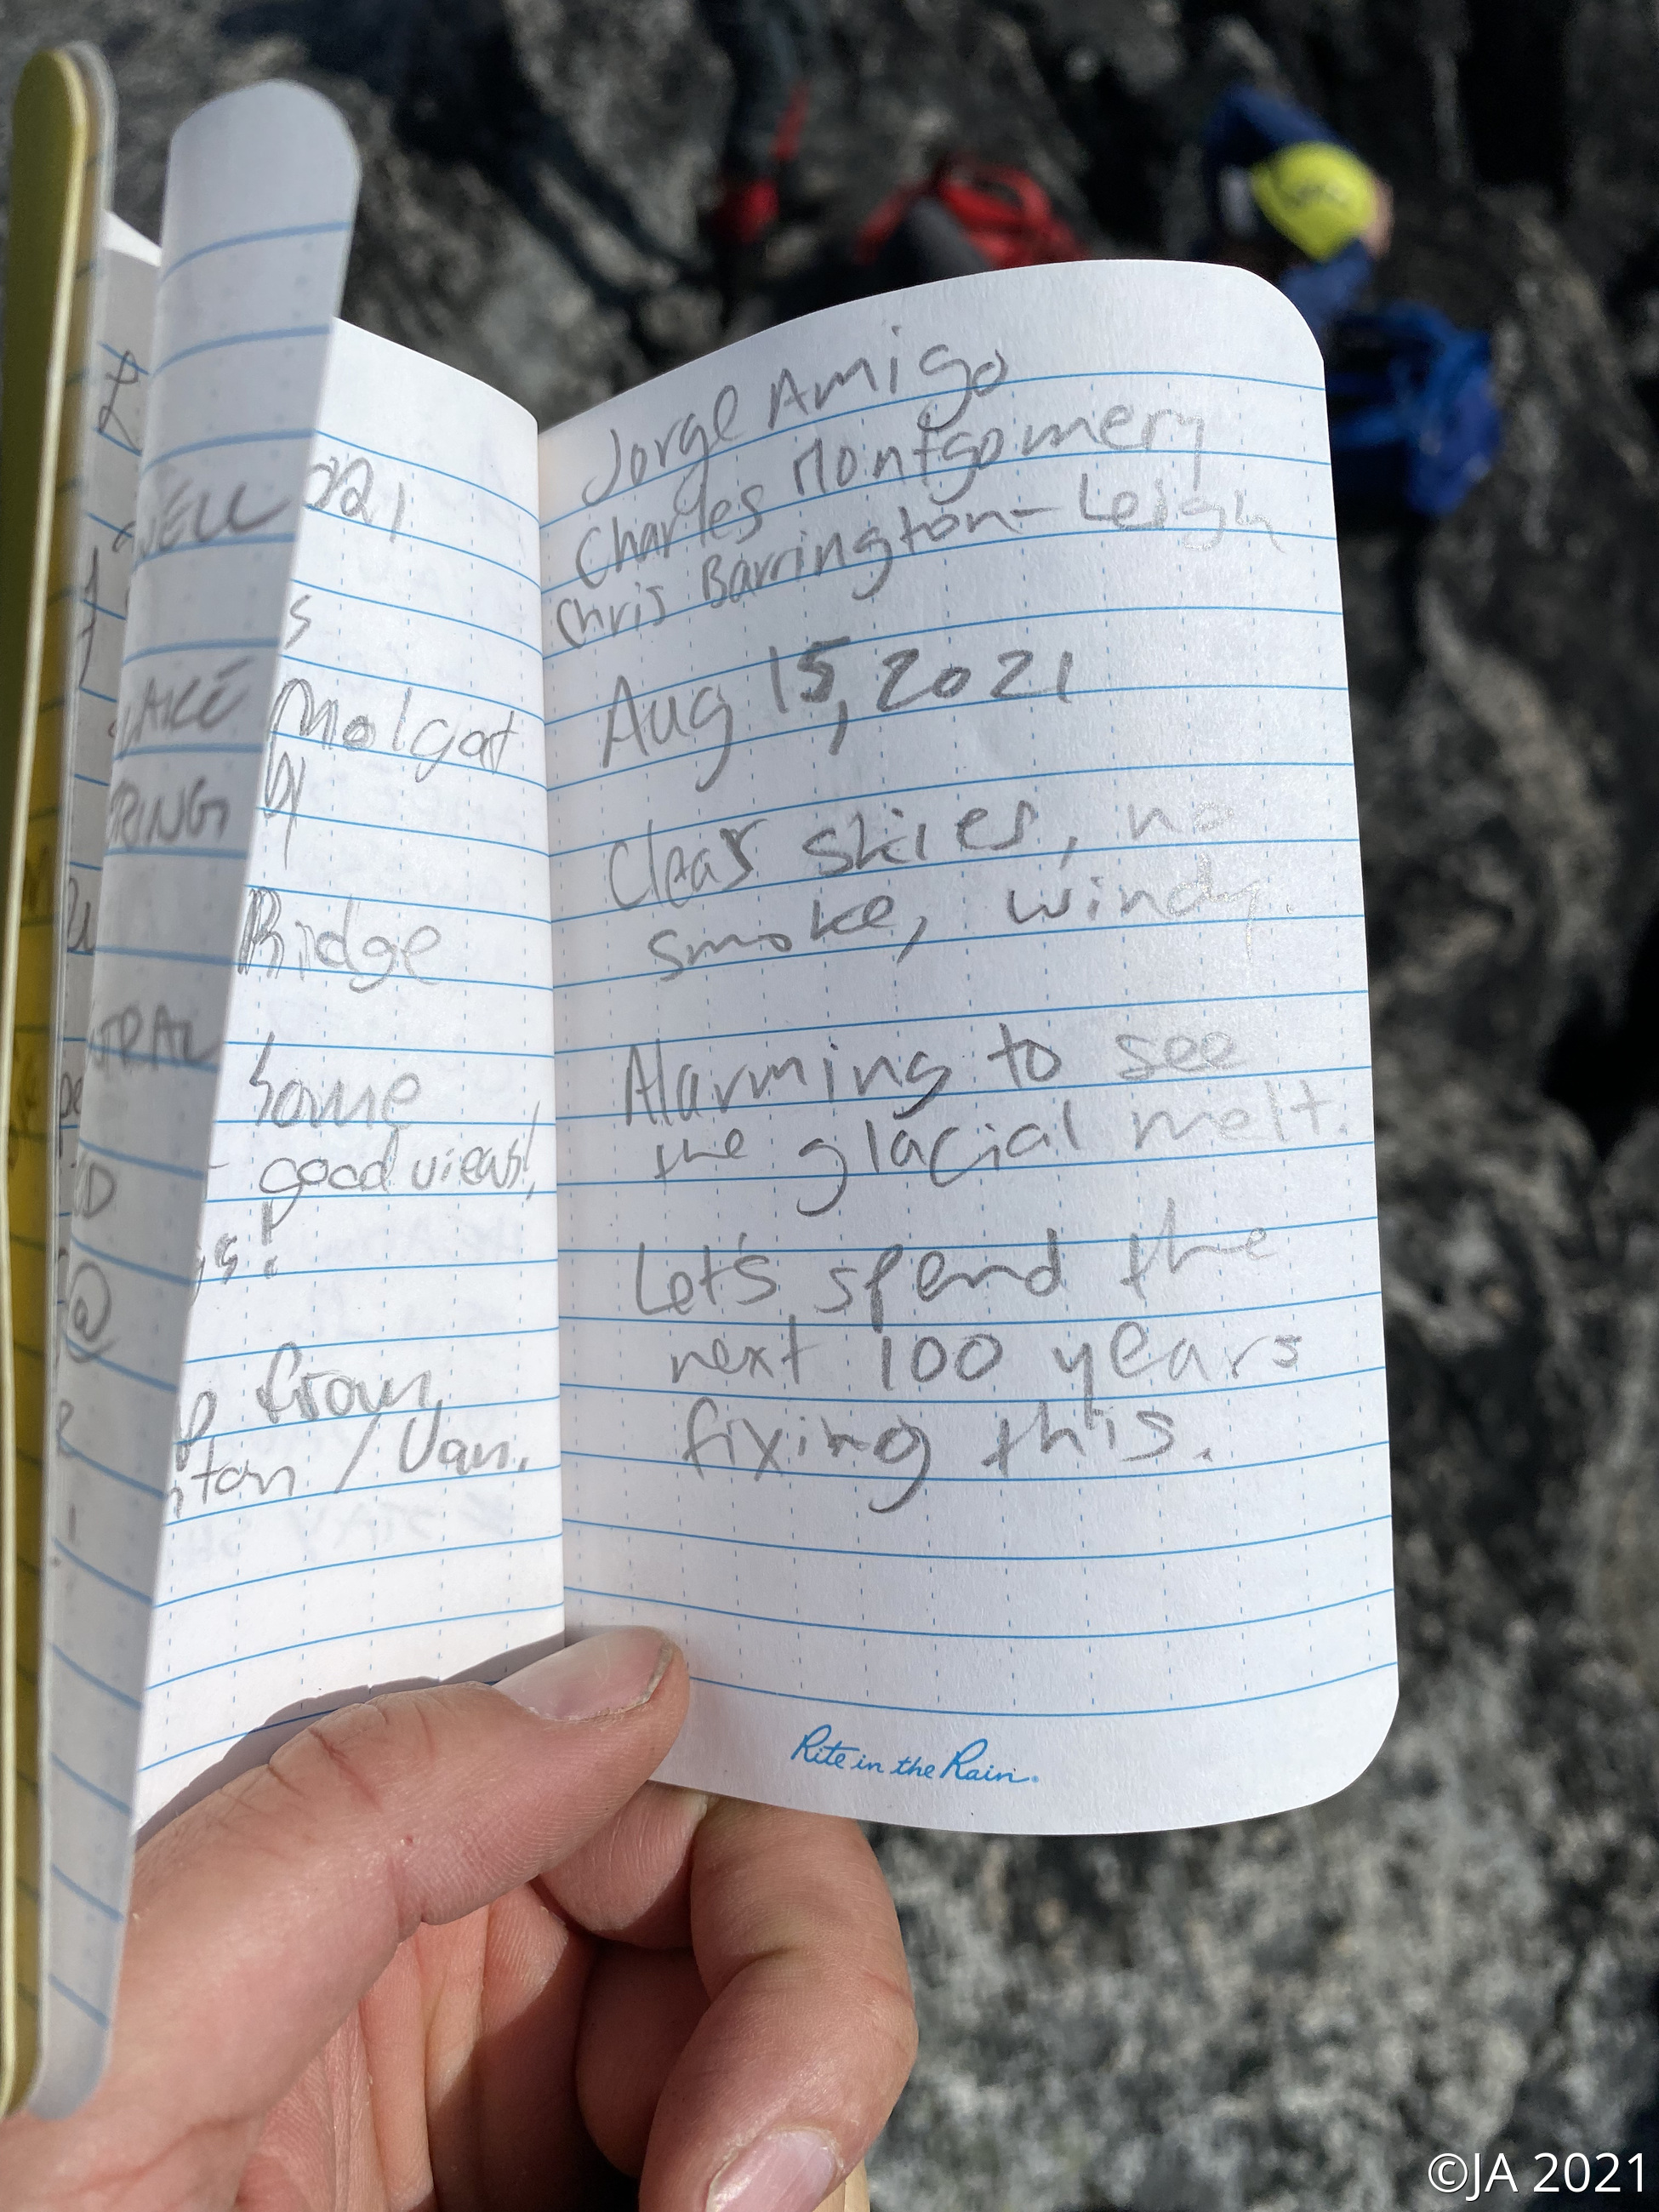 Jorge Amigo
Charles Montgomery
Chris Barrington-Leigh
Aug 15, 2021
Clear skies, no
smoke, windy.
Alarming to see
the glacial melt.
Let's spend the
next 100 years
fixing this.
Rite in the Rain
021
s
Molgat
Ridge
some
good views!,
from
/ Van.
ELL
LAKE
RING
TRAL
@
©JA 2021